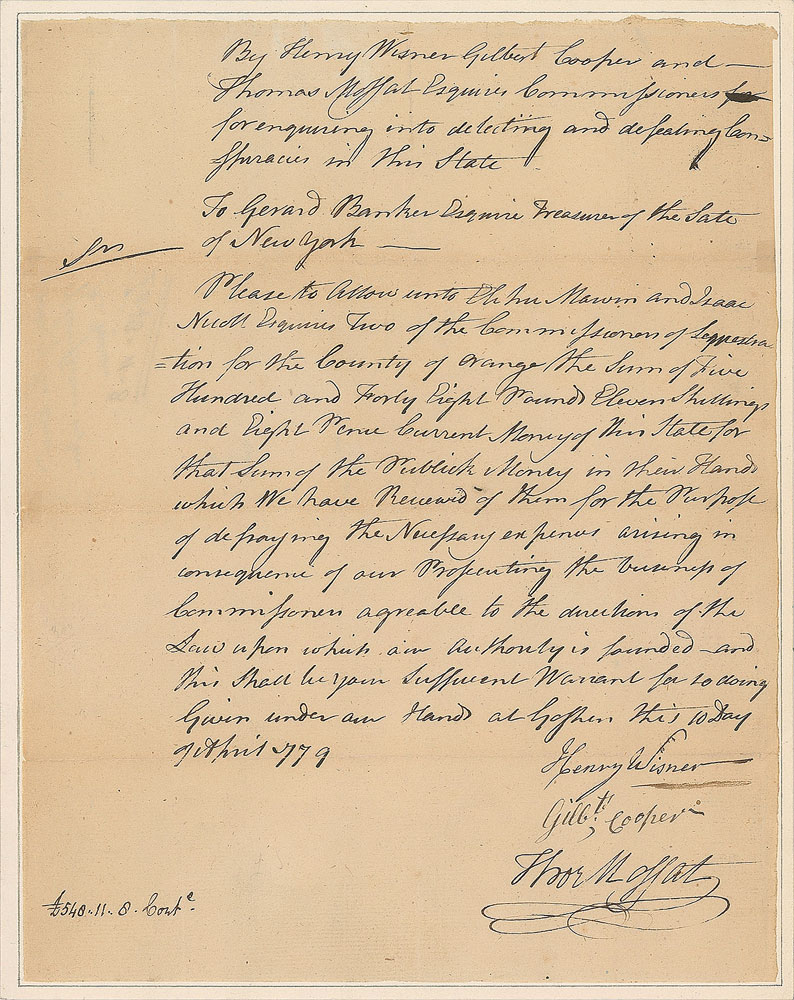 By Henry Wisner Gilbert Cooper and —
Thomas Moffat Esquires Commissioners
for enquiring into detecting and defeating Con=
spiracies in this State
To Gerard Banker Esquire Treasurer of the Sate
of New York —
Sir
Please to Allow unto Elihu Marvin and Isaac
Nicoll Esquires Two of the Commissioners of Sequestra
=tion for the County of orange the Sum of Five
Hundred and Forty Eight Pounds Eleven Shillings
and Eight Pence Current Money of this State for
that Sum of the Publick Money in their Hands
which We have Received of them for the Purpose
of defraying the Necessary expences arising in
consequence of our Prosecuting the business of
Commissioners agreable to the directions of the
Law upon which our authority is founded and
this Shall be your Sufficient Warrant for so doing
Given under our Hands at Goshen this 10 Day
of April 1779
Henry Wisner
Gilbt. Cooper
Thos Moffat
£548..11..8. Cont e.